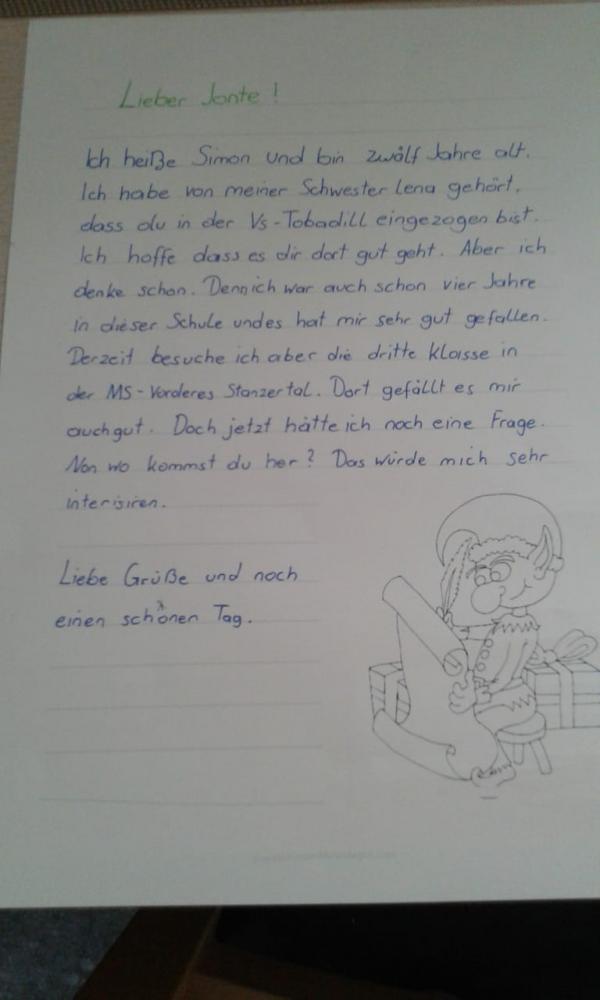 Lieber Jonte!
Ich heiße Simon und bin zwölf Jahre alt.
Ich habe von meiner Schwester Lena gehört,
dass du in der Vs-Tobadill eingezogen bist.
Ich hoffe dass es dir dort gut geht. Aber ich
denke schon. Denn ich war auch schon vier Jahre
in dieser Schule und es hat mir sehr gut gefallen.
Derzeit besuche ich aber die dritte Klasse in
der MS-Vorderes Stanzertal. Dort gefällt es mir
auch gut. Doch jetzt hätte ich noch eine Frage.
Von wo kommst du her? Das würde mich sehr
interisiren.
Liebe Grüße und noch
einen schönen Tag.